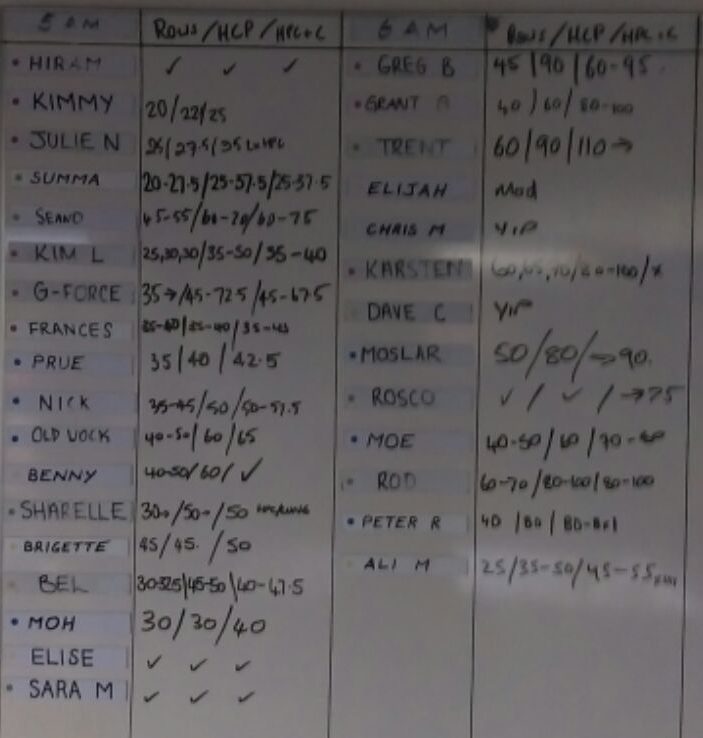 5 AM ROWS/HCP/HPC+C
HIRAM ✓ ✓ ✓
KIMMY 20/22/25
JULIE N 25/27.5/35
SUMMA 20-27.5/25-37.5/25-37.5
SEANO 45-55/60-70/60-75
KIM L 25,30,30/35-50/35-40
G-FORCE 35→/45-72.5/45-67.5
FRANCES 35-40/35-40/35-45
PRUE 35/40/42.5
NICK 35-45/50/50-57.5
OLD JOCK 40-50/60/65
BENNY 40-50/60/✓
SHARELLE 30+/50+/50
BRIGETTE 45/45./50
BEL 30-32.5/45-50/40-47.5
MOH 30/30/40
ELISE ✓ ✓ ✓
SARA M ✓ ✓ ✓
6 AM ROWS/HCP/HPC+C
GREG B 45/90/60-95
GRANT 40/60/80-100
TRENT 60/90/110→
ELIJAH Mod
CHRIS M YIP
KARSTEN /80-100/x
DAVE C YIP
MOSLAR 50/80/→90.
ROSCO ✓/✓/→75
MOE 40-50/60/70-80
ROD 60-70/80-100/80-100
PETER R 40/80/
ALI M 25/35-50/45-55